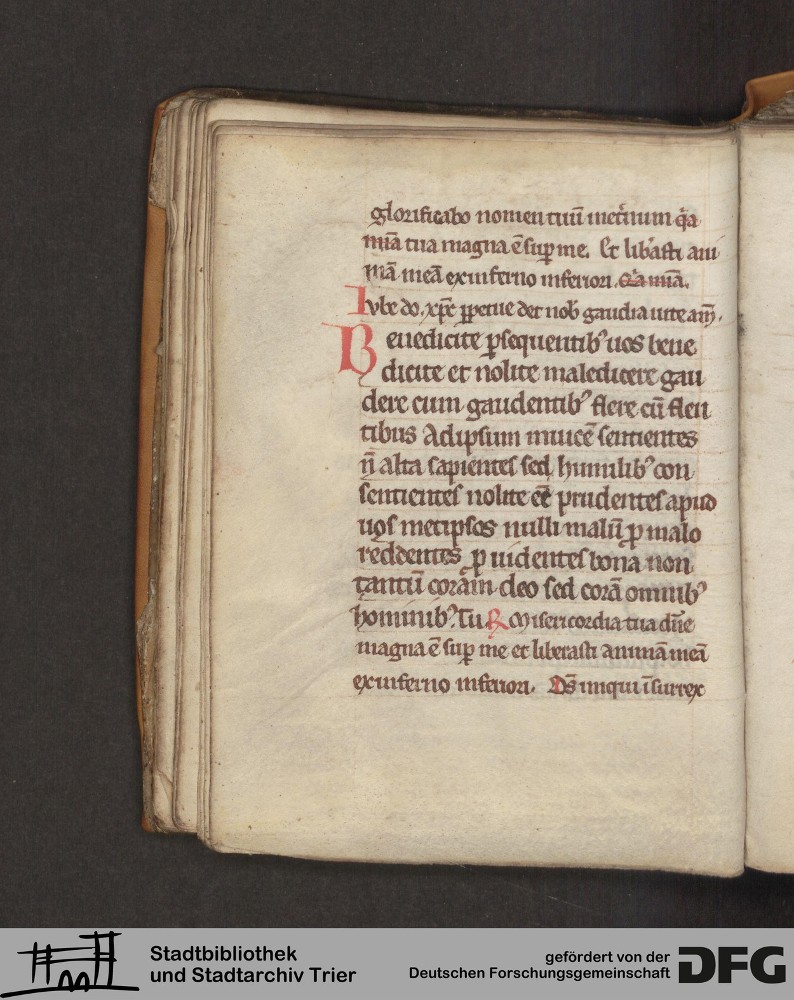 glorificabo nomen tuū inet̄num q̄a
mīa tua magna ē suꝑ me. Et lib̓asti ani
mā meā ex inferno inferiori. Q̄a mīa.
Iube do. xp̄e ꝑpetue det nob̓ gaudia uite am̄.
Benedicite ꝑsequentib᾽ uos bene
dicite et nolite maledicere gau
dere cum gaudentib᾽ flere cū flen
tibus Adipsum inuicē sentientes
n̄ alta sapientes sed humilib᾽ con
sentientes nolite eē prudentes apud
uos metipsos nulli malū ꝓ malo
reddentes ꝓuidentes bona non
tantū coram deo sed corā omnib᾽
hominib᾽. Tu ℟ Misericordia tua dn̄e
magna ē suꝑ me et liberasti animā meā
ex inferno inferiori. Ds̄ iniqui īsurrex
Stadtbibliothek
und Stadtarchiv Trier
gefördert von der
Deutschen Forschungsgemeinschaft
DFG